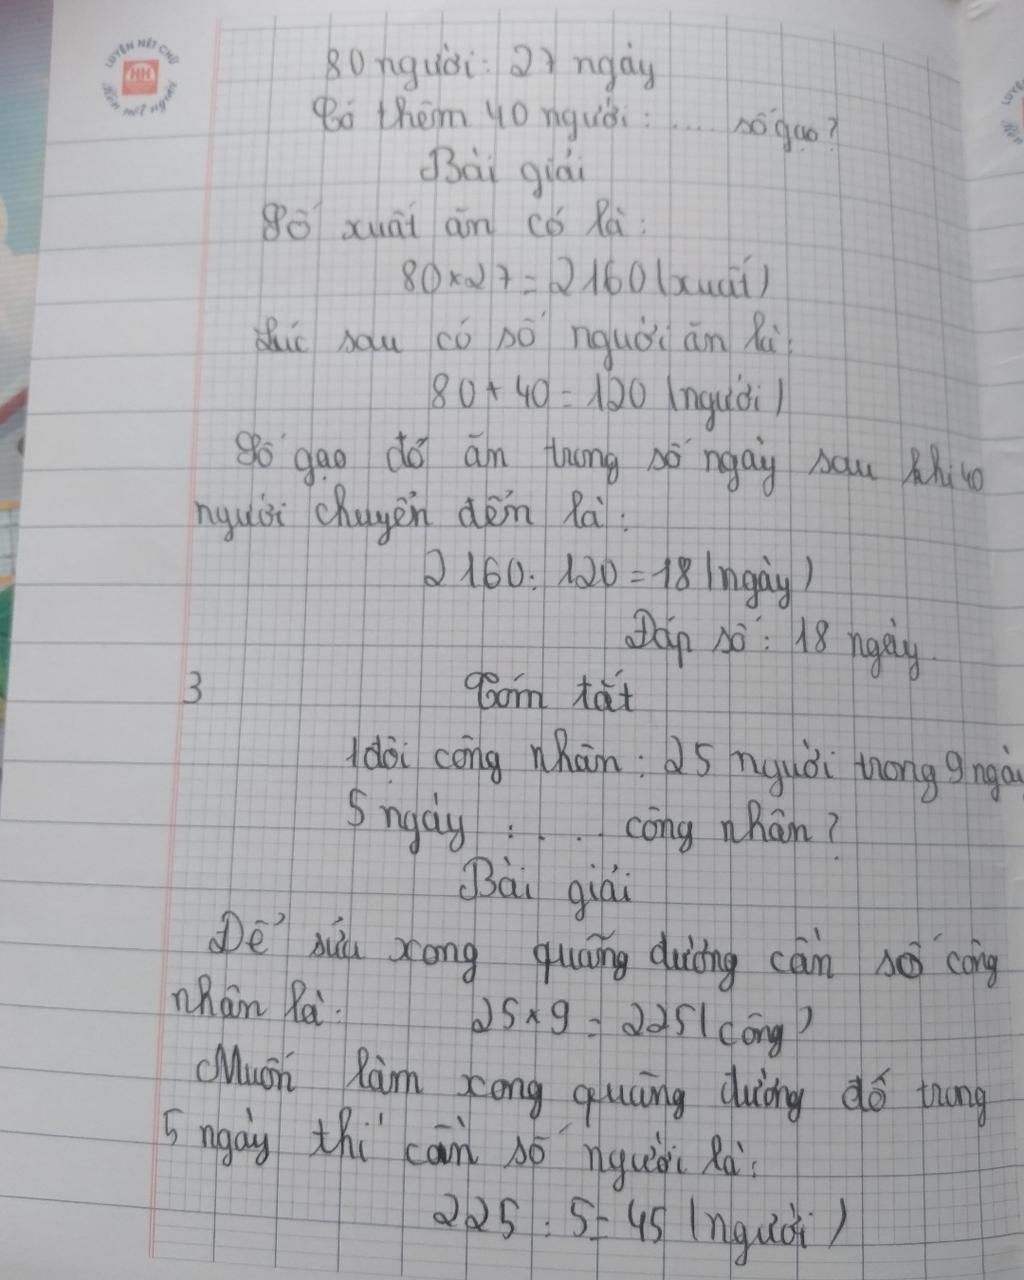 LUYỆN NÉT CHỮ
HH
Rèn nết người
80 người: 27 ngày
Có thêm 40 người: .... số gạo?
Bài giải
Số xuất ăn có là:
80 × 27 = 2160 (xuất)
Lúc sau có số người ăn là:
80 + 40 = 120 (người)
Số gạo đó ăn trong số ngày sau khi 40
người chuyển đến là:
2160 : 120 = 18 (ngày)
Đáp số: 18 ngày
3 Tóm tắt
1 đội công nhân: 25 người trong 9 ngày
5 ngày : ... công nhân?
Bài giải
Để sửa xong quãng đường cần số công
nhân là: 25 × 9 = 225 (công)
Muốn làm xong quãng đường đó trong
5 ngày thì cần số người là:
225 : 5 = 45 (người)